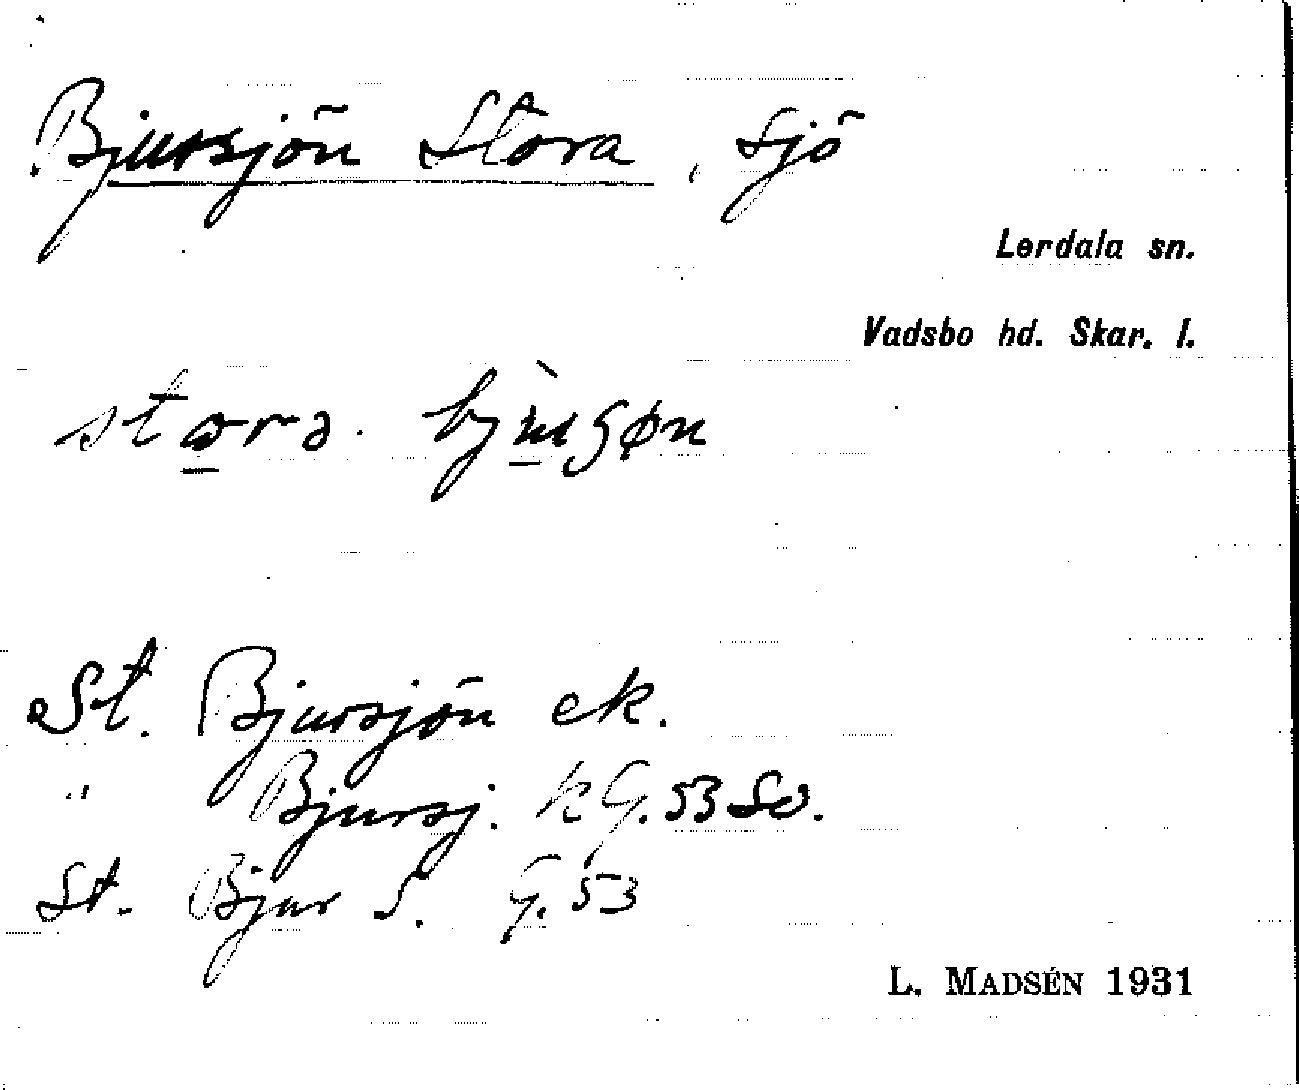 Bjursjön Stora, sjö
Lerdala sn.
Vadsbo hd. Skar. l.
stora bjùʂøn
St. Bjursjön ek.
" Bjursj. kG. 53 So.
St. Bjur S. G. 53
L. MADSÉN 1931